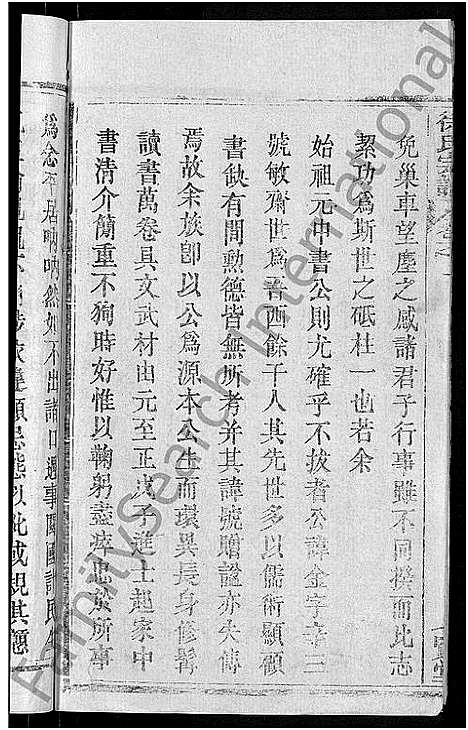 免巢車望塵之感諸君子行事雖不同揆而比志
絜功爲斯世之砥柱一也若余
始祖元中書公則尤確乎不拔者公諱金字幸三
號敏齋世爲晉西餘干人其先世多以儒術顯顧
書缺有間勲德皆無所考并其諱號贈諡亦失傳
焉故余族卽以公爲源本公生而環異長身修髯
讀書萬卷具文武材由元至正戊子進士起家中
書清介簡重不狥時好惟以鞠躬盡瘁忠於所事
爲念平居吶吶然如不出諸口遇事關國
FamilySearch International